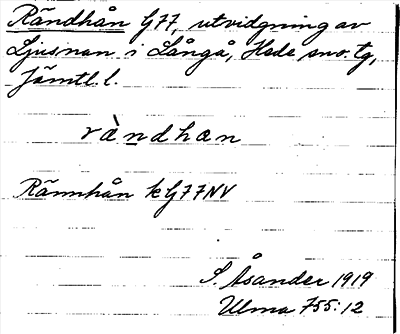 Rändhån G77, utvidgning av
Ljusnan i Långå, Hede sn o. tg,
Jämtl. l.
ràndhan
Rännhån k G77NV
S. Åsander 1919
Ulma 755:12